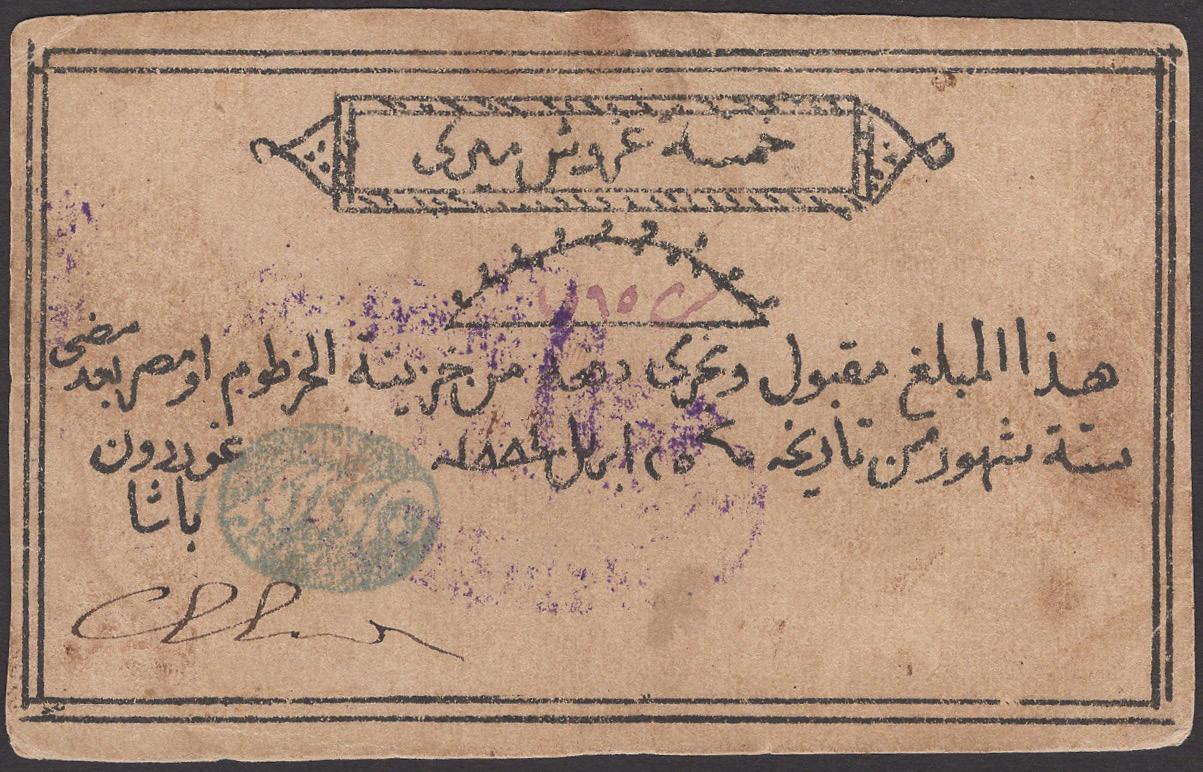 خمسه غروش ميرى
هذا المبلغ مقبول وتجرى دفعه من خزينة الخرطوم او مصر بعد مضى
ستة شهور من تاريخه ٢٥ ابريل ١٨٨٤
غوردون
باشا